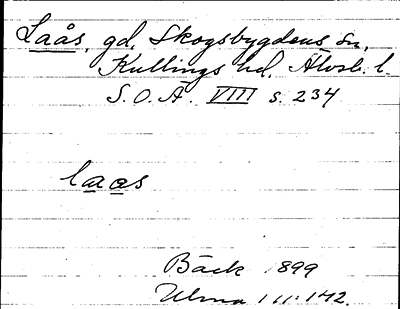 Laås, gd, Skogsbygdens sn,
Kullings hd, Älvsb. l.
S.O.Ä. VIII s. 234
laas
Bäck 1899
Ulma 111:142.